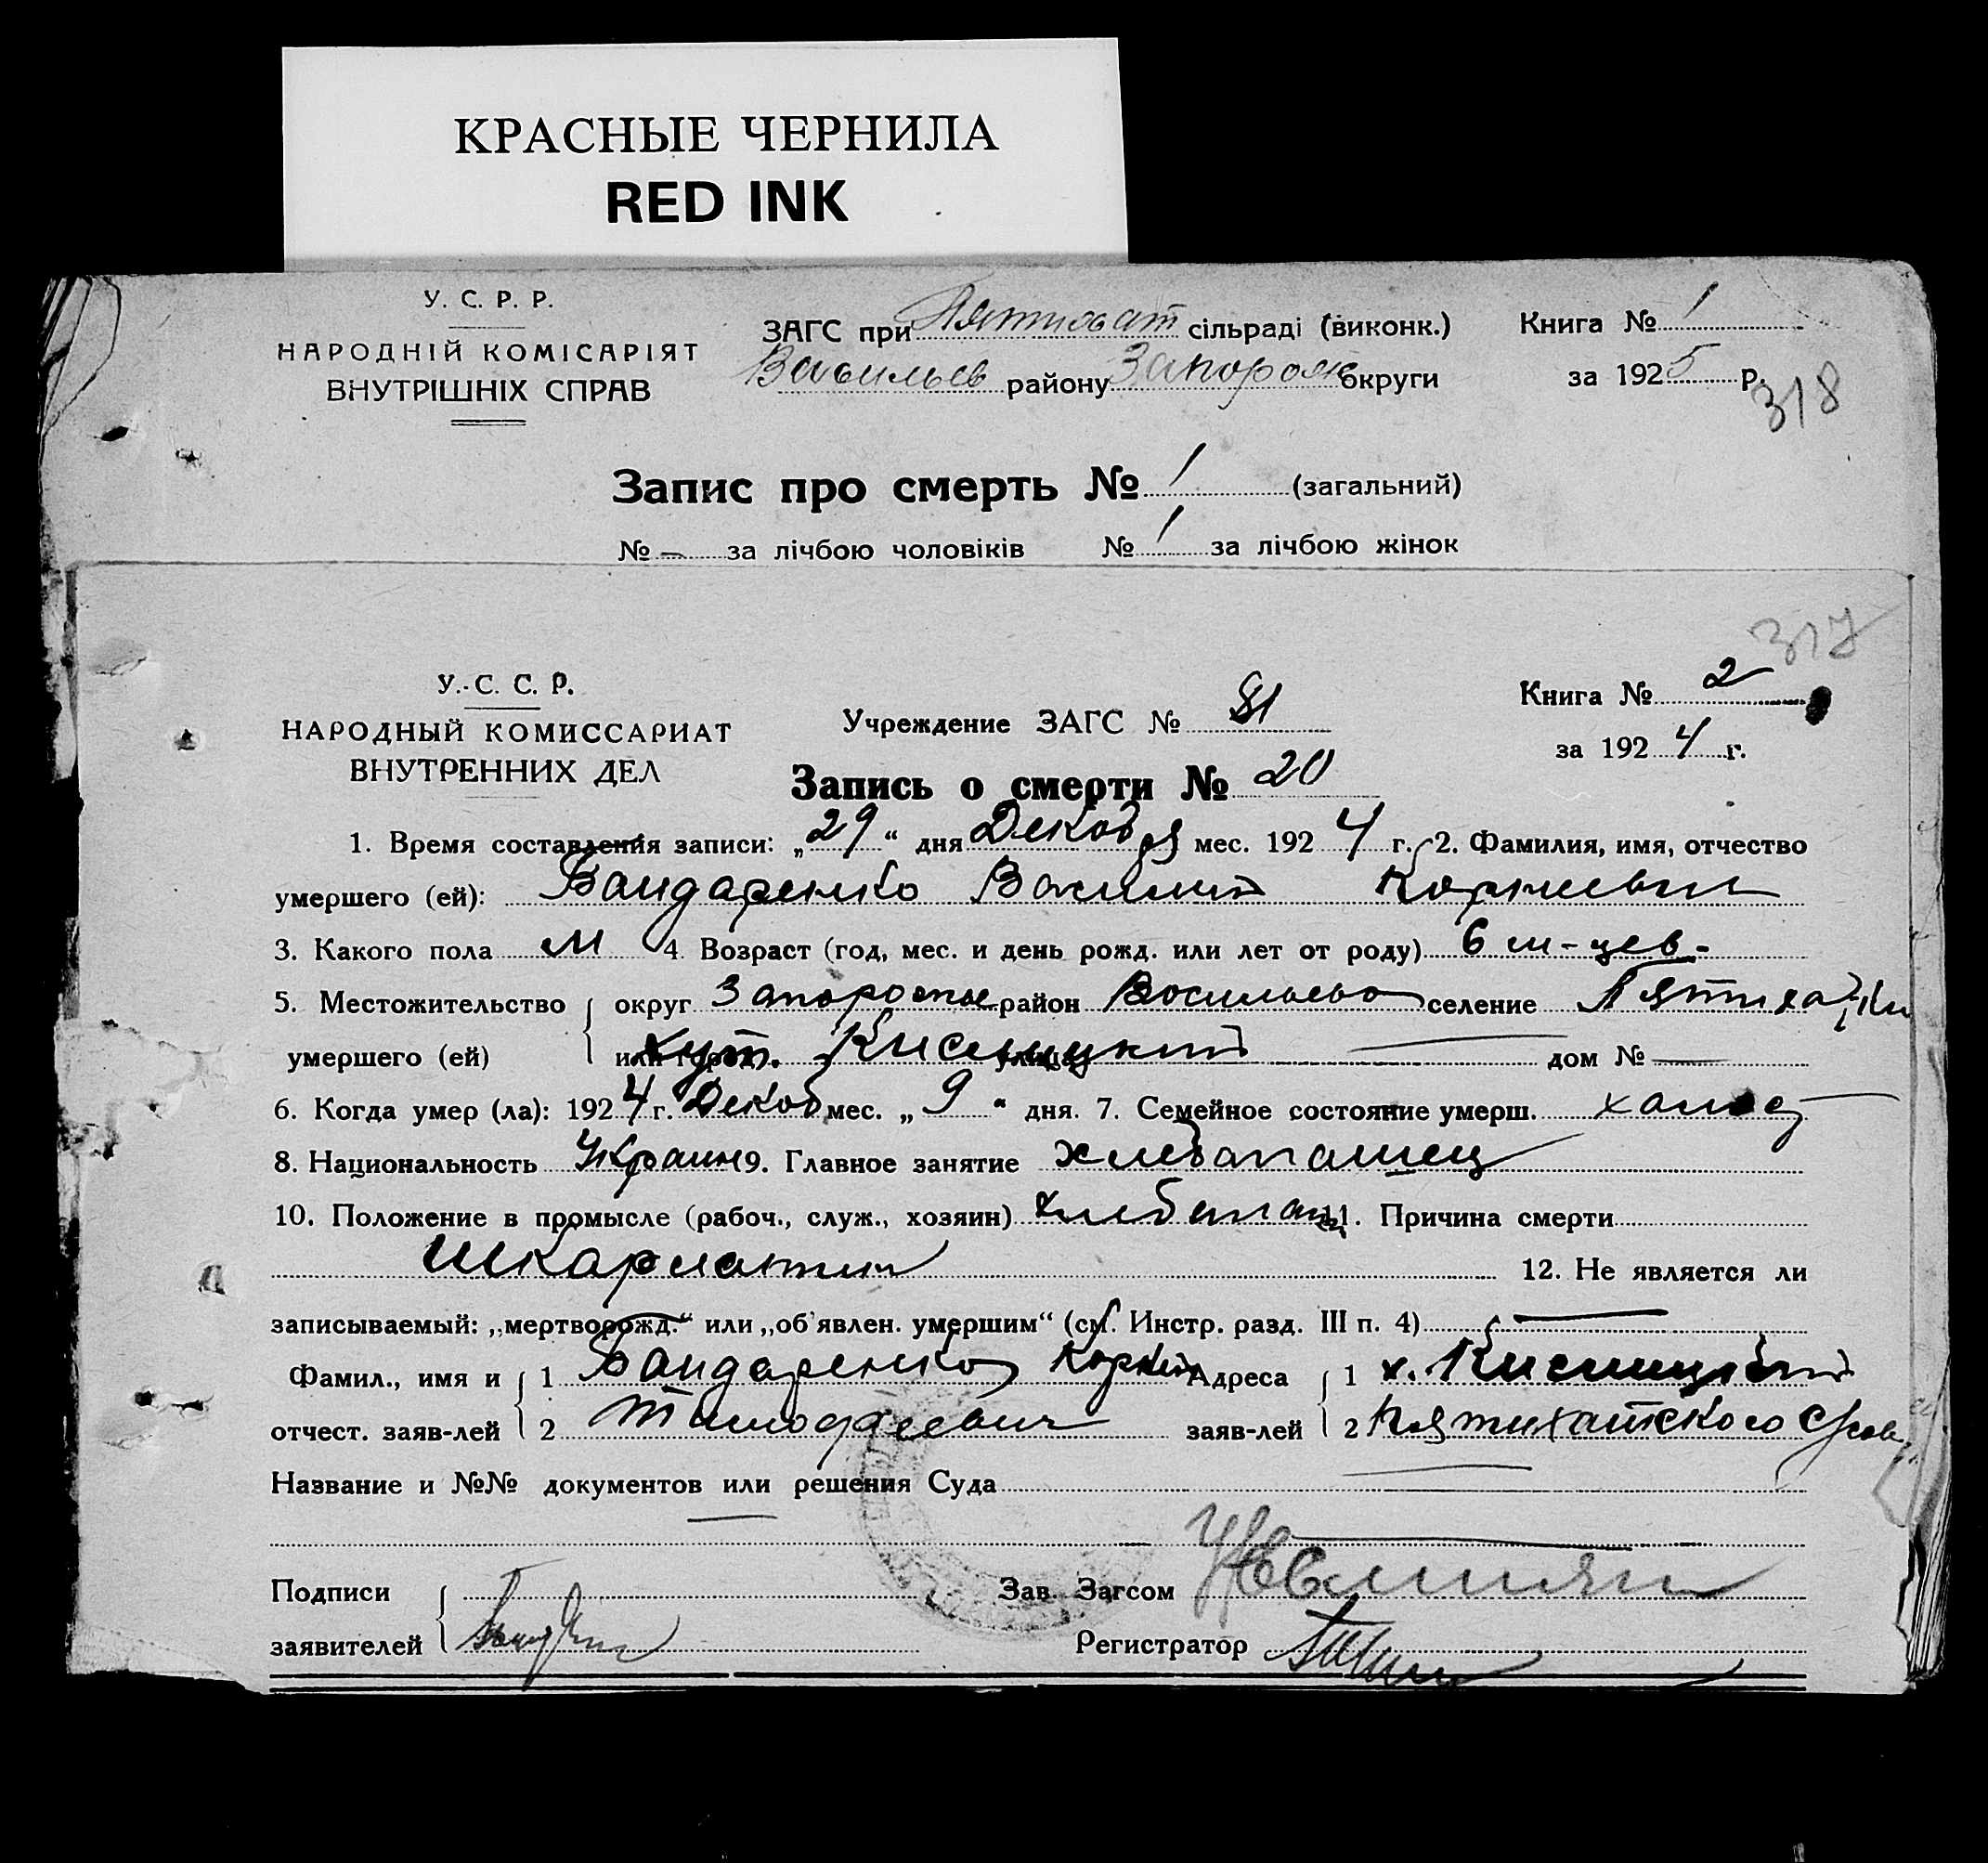 КРАСНЫЕ ЧЕРНИЛА
RED INK
У. С. Р. Р.
НАРОДНІЙ КОМІСАРІЯТ
ВНУТРІШНІХ СПРАВ
ЗАГС при Пятихат сільраді (виконк.)
Васильев району Запорож округи
Книга № 1
за 1925 р.
318
Запис про смерть № 1 (загальний)
№ – за лічбою чоловіків № 1 за лічбою жінок
317
У. С. С. Р.
НАРОДНЫЙ КОМИССАРИАТ
ВНУТРЕННИХ ДЕЛ
Учреждение ЗАГС № 81
Книга № 2
за 1924 г.
Запись о смерти № 20
1. Время составления записи: „29“ дня Декабря мес. 1924 г. 2. Фамилия, имя, отчество
умершего (ей): Бандаренко Василий Корнеевич
3. Какого пола м 4. Возраст (год, мес. и день рожд. или лет от роду) 6 м-цев-
5. Местожительство округ Запорожье район Васильево селение Пятихатки
умершего (ей) или город. хут. улица дом № —
6. Когда умер (ла): 1924 г. Декаб мес. „9“ дня. 7. Семейное состояние умерш. халост
8. Национальность Украин 9. Главное занятие хлебапашец
10. Положение в промысле (рабоч., служ., хозяин) хлебапашц 11. Причина смерти
Шкарлатин 12. Не является ли
записываемый: „мертворожд.“ или „об'явлен. умершим“ (см. Инстр. разд. III п. 4) —
Фамил., имя и 1 Бандаренко Корней Адреса 1 х.
отчест. заяв-лей 2 Тимофеевич заяв-лей 2 Пятихатского
Название и №№ документов или решения Суда —
Подписи Зав. Загсом
заявителей Регистратор